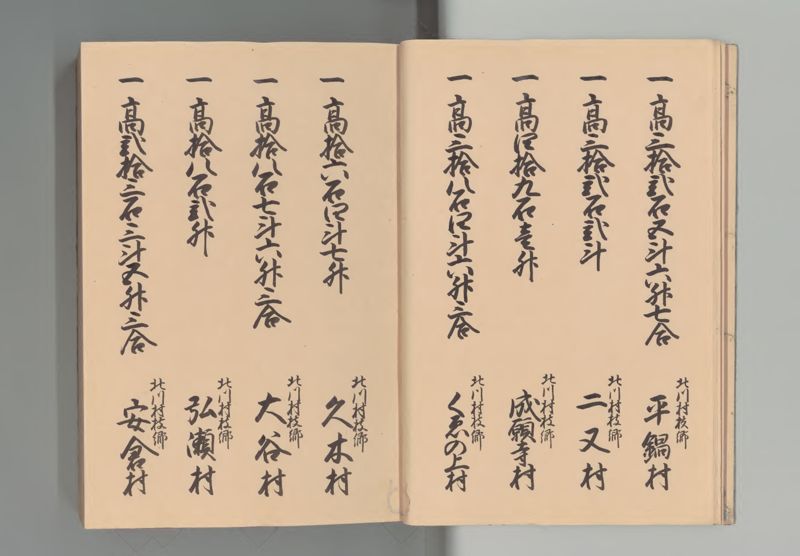 一 高三拾弐石五斗六升七合
北川村枝郷
平鍋村
一 高三拾弐石弐斗
北川村枝郷
二又村
一 高四拾九石壱升
北川村枝郷
成願寺村
一 高三拾八石四斗六升三合
北川村枝郷
くゑの上村
一 高拾六石四斗七升
北川村枝郷
久木村
一 高拾八石七斗六升三合
北川村枝郷
大谷村
一 高拾八石弐升
北川村枝郷
弘瀬村
一 高弐拾三石三斗五升三合
北川村枝郷
安倉村